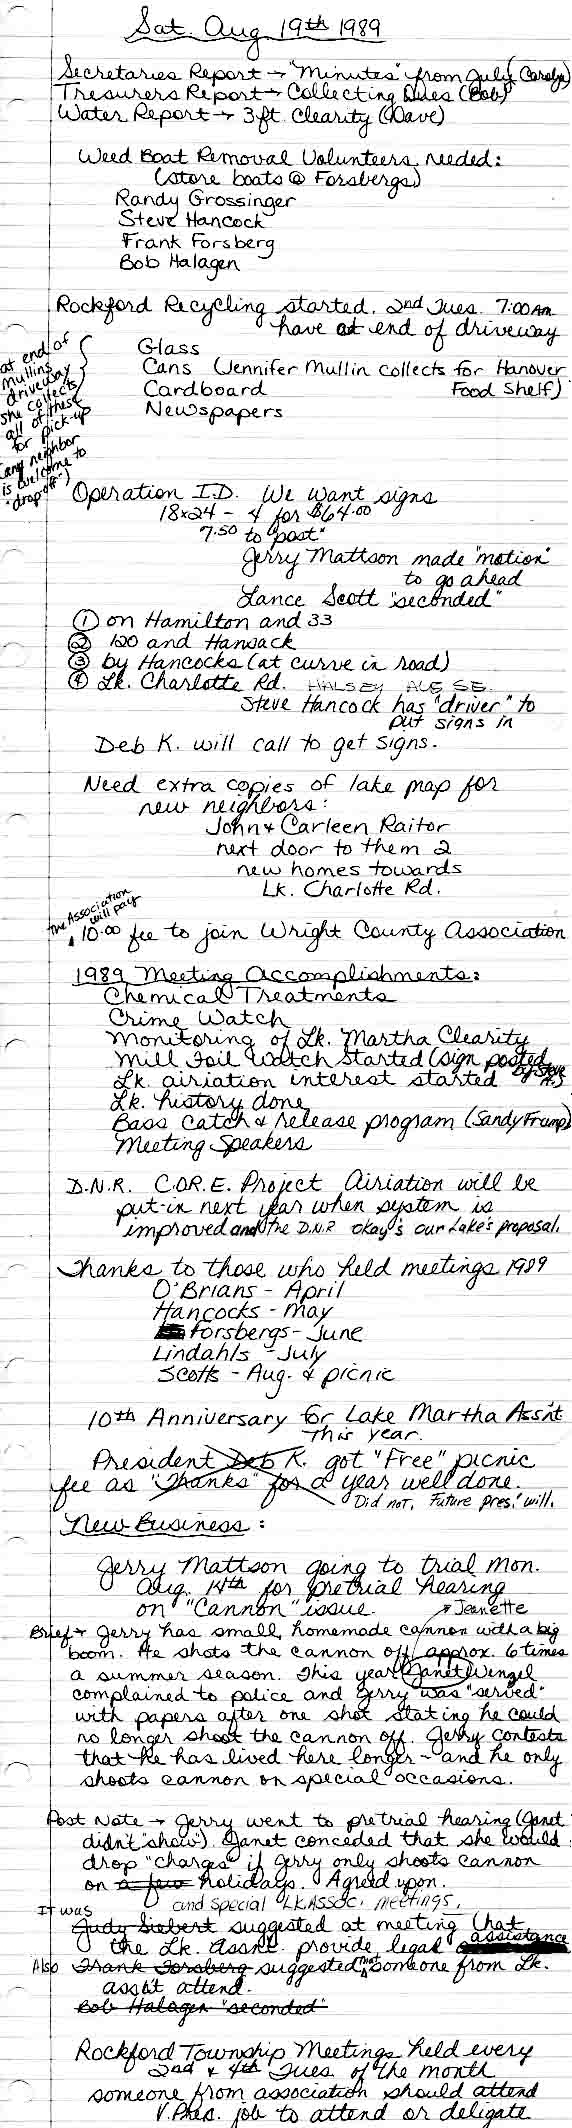 Sat. Aug 19th 1989
Secretaries Report → "Minutes" from July (Carolyn)
Tresurers Report → Collecting Dues (Bob)
Water Report → 3 ft. Clearity (Dave)
Weed Boat Removal Volunteers needed:
(store boats @ Forsbergs)
Randy Grossinger
Steve Hancock
Frank Forsberg
Bob Halagen
Rockford Recycling started. 2nd Tues. 7:00 Am
have at end of driveway
Glass
Cans (Jennifer Mullin collects for Hanover
Cardboard Food Shelf)
Newspapers
at end of
Mullins
driveway
she collects
all of these
for pick-up
(any neighbor
is welcome to
"drop off")
Operation I.D. We want signs
18x24 - 4 for $64.00
7.50 to "post"
Jerry Mattson made "motion"
to go ahead
Lance Scott "seconded"
① on Hamilton and 33
② 120 and Hansack
③ by Hancocks (at curve in road)
④ Lk. Charlotte Rd. HALSEY AVE SE.
Steve Hancock has "driver" to
put signs in
Deb K. will call to get signs.
Need extra copies of lake map for
new neighbors:
John & Carleen Raitor
next door to them 2
new homes towards
Lk. Charlotte Rd.
The Association
will pay
10.00 fee to join Wright County Association
1989 Meeting Accomplishments:
Chemical Treatments
Crime Watch
Monitoring of Lk. Martha Clearity
Mill Foil Watch Started (sign posted
by Steve
H.)
Lk. airiation interest started
Lk. history done
Bass Catch & release program (Sandy Frump)
Meeting Speakers
D.N.R. C.O.R.E. Project Airiation will be
put-in next year when system is
improved and the D.N.R okay's our Lake's proposal.
Thanks to those who held meetings 1989
O'Brians - April
Hancocks - May
Forsbergs - June
Lindahls - July
Scotts - Aug. & picnic
10th Anniversary for Lake Martha Ass'nt
this year.
President Deb K. got "Free" picnic
fee as "Thanks" for a year well done.
Did not. Future pres. will.
New Business:
Jerry Mattson going to trial Mon.
Aug. 14th for pretrial hearing
on "Cannon" issue.
Jeanette
Brief → Jerry has small, homemade cannon with a big
boom. He shots the cannon off approx. 6 times
a summer season. This year Janet Wengel
complained to police and Jerry was "served"
with papers after one shot stating he could
no longer shoot the cannon off. Jerry contests
that he has lived here longer - and he only
shoots cannon on special occasions.
Post Note → Jerry went to pretrial hearing (Janet
didn't "show"). Janet conceded that she would
drop "charges" if Jerry only shoots cannon
on a few holidays. Agreed upon.
and special LK. ASSOC. meetings.
It was
Judy Siebert suggested at meeting that
the Lk. Ass'nt. provide legal assistance
Also Frank Forsberg suggested that someone from Lk.
ass't attend.
Bob Halagen "seconded"
Rockford Township Meetings held every
2nd & 4th Tues of the month
someone from association should attend
V. Pres. job to attend or deligate